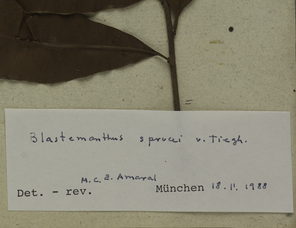 Blastemanthus sprucei v. Tiegh.
M.C.E. Amaral
Det. - rev. München 18.11.1988